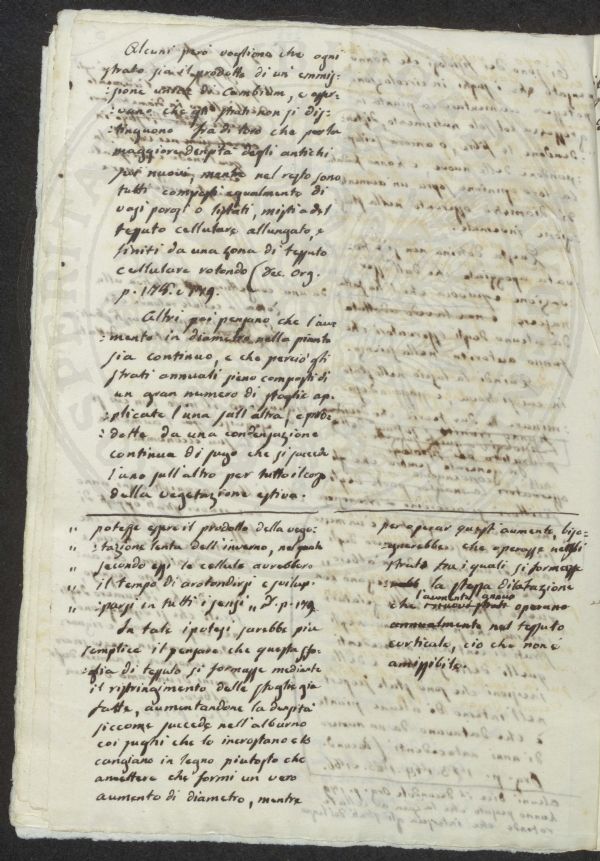 Alcuni però vogliono che ogni
strato sia il prodotto di un' emmis-
:sione di Cambium, e osser-
:vano che gli strati non si dis-
:tinguono fra di loro che per la
maggiore densità degli antichi
sui nuovi, mentre nel resto sono
tutti composti egualmente di
vasi porosi o fessi, misti a del
tessuto cellulare allungato, e
finiti da una zona di tessuto
cellulare rotondo (Dec. Org.
p. 178. e 179.
Altri poi pensano che l'au-
:mento in diametro nella pianta
sia continuo, e che perciò gli
strati annuali sieno composti di
un gran numero di sfoglie ap-
:plicate l'una sull'altra, e prodotte
dette da una condensazione
continua di sugo che si succede
l'uno sull'altro per tutto il corso
della vegetazione estiva.
" potesse essere il prodotto della vege-
" :tazione lenta dell'inverno, nel quale
" secondo essi le cellule avrebbero
" il tempo di arotondarsi e svilup-
" :parsi in tutti i sensi " p. 179.
In tale ipotesi sarebbe piu
semplice il pensare che questa sfo-
:glia di tessuto si formasse mediante
il ristringimento delle sfoglie gia
fatte, aumentandone la densità
siccome succede nell'alburno
coi sughi che lo incrostano e lo
cangiano in legno piutosto che
amettere che formi un vero
aumento di diametro, mentre
per operar quest'aumento, biso-
:gnerebbe che operasse
strati tra i quali si formasse
la stessa dilatazione
l'aumento annuo
che i nuovi strati operano
annualmente nel tessuto
corticale, cio che non è
amissibile.